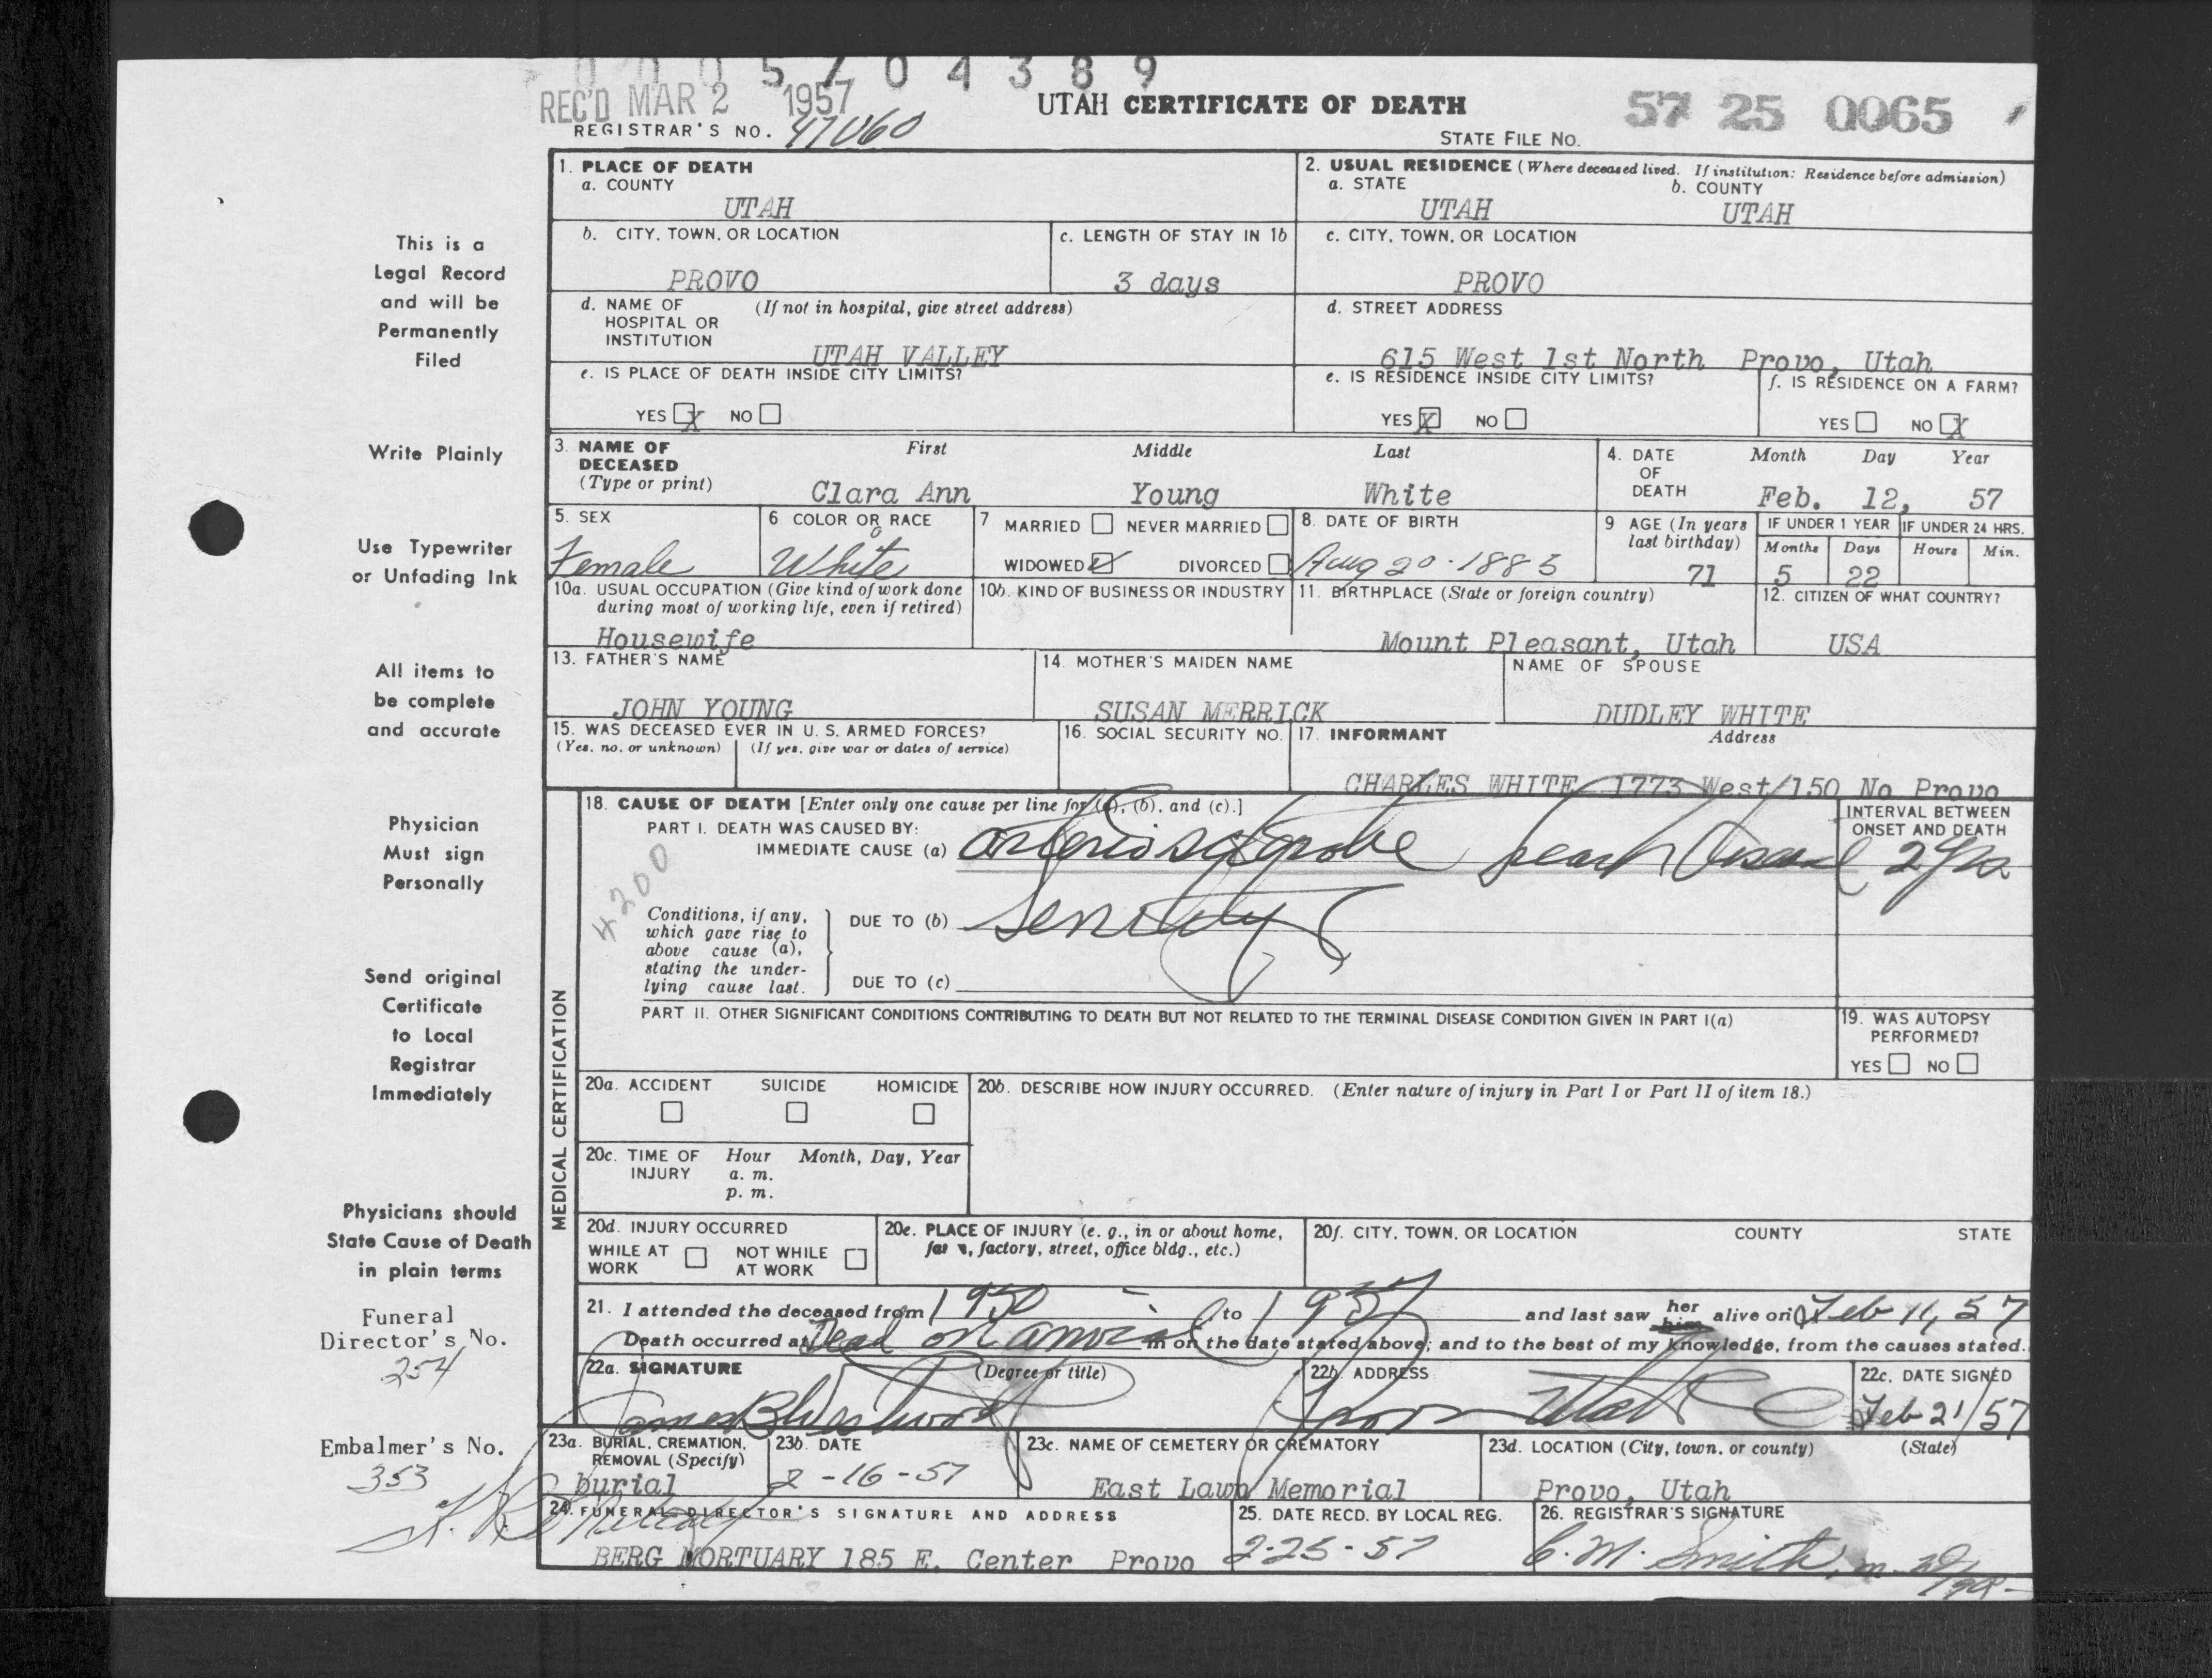 0 0 0 5 7 0 4 3 8 9
REC'D MAR 2 1957
UTAH CERTIFICATE OF DEATH
57 25 0065
REGISTRAR'S NO. 47060
STATE FILE No.
1. PLACE OF DEATH
a. COUNTY
UTAH
2. USUAL RESIDENCE (Where deceased lived. If institution: Residence before admission)
a. STATE
UTAH
b. COUNTY
UTAH
b. CITY, TOWN, OR LOCATION
PROVO
c. LENGTH OF STAY IN 1b
3 days
c. CITY, TOWN, OR LOCATION
PROVO
d. NAME OF HOSPITAL OR INSTITUTION
(If not in hospital, give street address)
UTAH VALLEY
d. STREET ADDRESS
615 West 1st North Provo, Utah
e. IS PLACE OF DEATH INSIDE CITY LIMITS?
YES X NO
e. IS RESIDENCE INSIDE CITY LIMITS?
YES X NO
f. IS RESIDENCE ON A FARM?
YES NO X
3. NAME OF DECEASED
(Type or print)
First Middle Last
Clara Ann Young White
4. DATE OF DEATH
Month Day Year
Feb. 12, 57
5. SEX
Female
6. COLOR OR RACE
White
7 MARRIED NEVER MARRIED
WIDOWED ✓ DIVORCED
8. DATE OF BIRTH
Aug 20 - 1885
9 AGE (In years last birthday)
71
IF UNDER 1 YEAR
Months Days
5 22
IF UNDER 24 HRS.
Hours Min.
10a. USUAL OCCUPATION (Give kind of work done during most of working life, even if retired)
Housewife
10b. KIND OF BUSINESS OR INDUSTRY
11. BIRTHPLACE (State or foreign country)
Mount Pleasant, Utah
12. CITIZEN OF WHAT COUNTRY?
USA
13. FATHER'S NAME
JOHN YOUNG
14. MOTHER'S MAIDEN NAME
SUSAN MERRICK
NAME OF SPOUSE
DUDLEY WHITE
15. WAS DECEASED EVER IN U. S. ARMED FORCES?
(Yes, no, or unknown) (If yes, give war or dates of service)
16. SOCIAL SECURITY NO.
17. INFORMANT Address
CHARLES WHITE 1773 West 150 No Provo
18. CAUSE OF DEATH [Enter only one cause per line for (a), (b), and (c).]
PART I. DEATH WAS CAUSED BY:
IMMEDIATE CAUSE (a)
INTERVAL BETWEEN ONSET AND DEATH
2 yrs
4200
Conditions, if any, which gave rise to above cause (a), stating the underlying cause last.
DUE TO (b) Senility
DUE TO (c)
PART II. OTHER SIGNIFICANT CONDITIONS CONTRIBUTING TO DEATH BUT NOT RELATED TO THE TERMINAL DISEASE CONDITION GIVEN IN PART I(a)
19. WAS AUTOPSY PERFORMED?
YES NO
20a. ACCIDENT SUICIDE HOMICIDE
20b. DESCRIBE HOW INJURY OCCURRED. (Enter nature of injury in Part I or Part II of item 18.)
20c. TIME OF INJURY
Hour Month, Day, Year
a. m.
p. m.
20d. INJURY OCCURRED
WHILE AT WORK NOT WHILE AT WORK
20e. PLACE OF INJURY (e. g., in or about home, farm, factory, street, office bldg., etc.)
20f. CITY, TOWN, OR LOCATION COUNTY STATE
MEDICAL CERTIFICATION
21. I attended the deceased from 1950 to 1957 and last saw her him alive on Feb 11, 57
Death occurred at Dead on arrival m on the date stated above; and to the best of my knowledge, from the causes stated.
22a. SIGNATURE (Degree or title)
James B Westwood
22b. ADDRESS
Provo Utah
22c. DATE SIGNED
Feb 21/57
23a. BURIAL, CREMATION, REMOVAL (Specify)
burial
23b. DATE
2-16-57
23c. NAME OF CEMETERY OR CREMATORY
East Lawn Memorial
23d. LOCATION (City, town, or county) (State)
Provo, Utah
24. FUNERAL DIRECTOR'S SIGNATURE AND ADDRESS
BERG MORTUARY 185 E. Center Provo
25. DATE RECD. BY LOCAL REG.
2-25-57
26. REGISTRAR'S SIGNATURE
C. M. Smith, M. D.
This is a
Legal Record
and will be
Permanently
Filed
Write Plainly
Use Typewriter
or Unfading Ink
All items to
be complete
and accurate
Physician
Must sign
Personally
Send original
Certificate
to Local
Registrar
Immediately
Physicians should
State Cause of Death
in plain terms
Funeral
Director's No.
254
Embalmer's No.
353